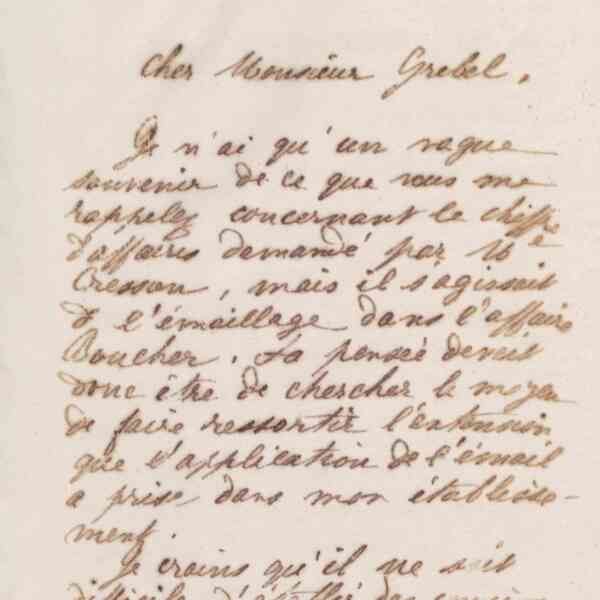 Cher Monsieur Grebel.
Je n'ai qu'un vague
souvenir de ce que vous me
rappelez concernant le chiffre
d'affaires demandé par Me
Cresson, mais il s'agissait
de l'émaillage dans l'affaire
Boucher. Sa pensée devait
donc être de chercher le moyen
de faire ressortir l'extension
que l'application de l'émail
a prise dans mon établisse-
ment.
Je crains qu'il ne soit
difficile d'établir